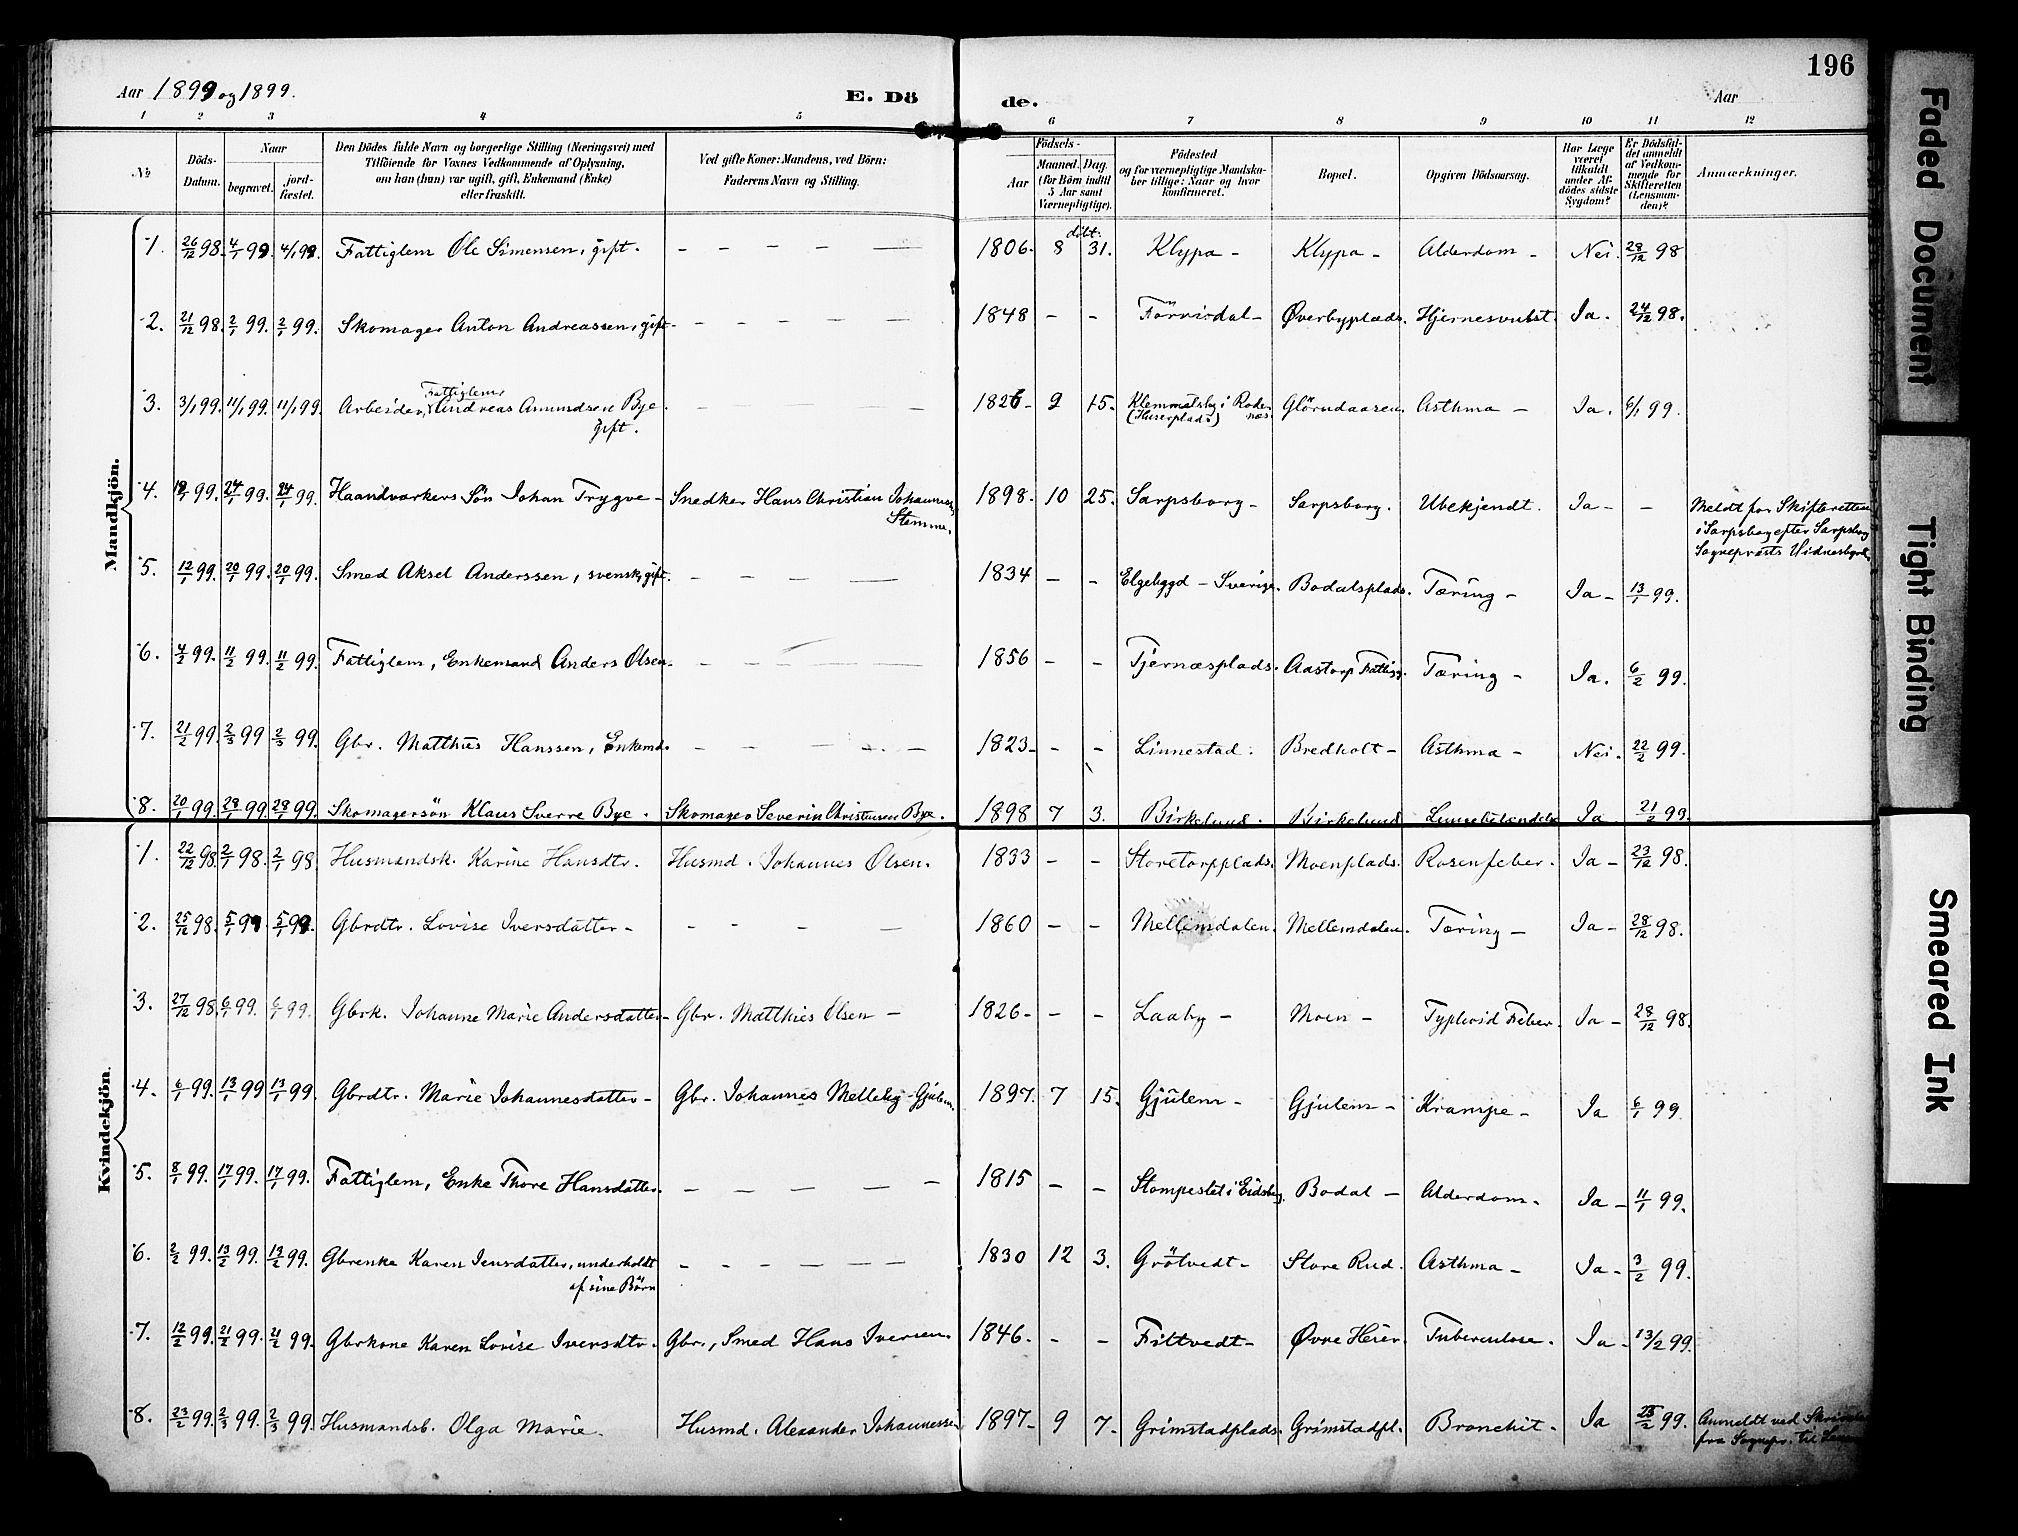 196
Aar 1899 og 1899.
E. Dö de.
Aar
1 2 3 4 5 6 7 8 9 10 11 12
№
Döds-Datum.
Naar
begravet.
jord-fæstet.
Den Dödes fulde Navn og borgerlige Stilling (Næringsvei) med
Tilföiende for Voxnes Vedkommende af Oplysning,
om han (hun) var ugift, gift, Enkemand (Enke)
eller fraskilt.
Ved gifte Koner: Mandens, ved Börn:
Faderens Navn og Stilling.
Födsels-
Aar
Maaned. Dag.
(for Börn indtil
5 Aar samt
Værnepligtige).
Födested
og for værnepligtige Mandska-
ber tillige: Naar og hvor
konfirmeret.
Bopæl.
Opgiven Dödsaarsag.
Har Læge
været
tilkaldt
under Af-
dödes sidste
Sygdom?
Er Dödsfal-
det anmeldt
af Vedkom-
mende for
Skifteretten
(Lensman-
den)?
Anmærkninger.
Mandkjön.
döbt.
1. 26/12 98. 4/1 99 4/1 99 Fattiglem Ole Simensen, gift. – – – – — 1806. 8 31. Klypa – Klypa – Alderdom – Nei. 28/12 98
2. 21/12 98. 2/1 99. 2/1 99. Skomager Anton Andreassen, gift. – – – – — 1848 – – Förrisdal – Øverbyplads. Hjernesvulst. Ja. 24/12 98.
Fattiglem
3. 3/1 99. 11/1 99. 11/1 99 Arbeider, Andreas Amundsen Bye. – — — 1826 – 9 15. Klemmalsby i Rode- Glörudaasen. Asthma – Ja. 6/1 99.
gift. (Huserplads) næs.
4. 19/1 99. 24/1 99. 24/1 99. Haandværkers Sön Johan Trygve – Snedker Hans Christian Johannes 1898. 10 25. Sarpsborg – Sarpsborg. Ubekjendt. Ja – – Meldt for Skifteretten
Stemme. i Sarpsborg efter Sarpsborg
Sogneprests Vidnesbyrd
5. 12/1 99. 20/1 99. 20/1 99. Smed Aksel Anderssen, svensk, gift. – – – — 1834 – – Elgebygd – Sverige. Bodalsplads. Tæring – Ja – 13/1 99.
6. 4/2 99. 11/2 99. 11/2 99. Fattiglem, Enkemand Anders Olsen. – — — — 1856 – – Tjernæsplads. Aastorp Fattigg. Tæring – Ja. 6/2 99.
7. 21/2 99. 2/3 99 2/3 99. Gbr. Matthies Hanssen, Enkemd. – – – – – 1823 – – – Linnestad. Bredholt – Asthma – Nei. 22/2 99.
8. 20/1 99. 28/1 99. 28/1 99. Skomagersön Klaus Sverre Bye. Skomager Severin Christensen Bye. 1898 7 3. Birkelund. Birkelund Lungebetændelse Ja 21/2 99.
Kvindekjön.
1. 22/12 98. 2/1 98. 2/1 98. Husmandsk. Karine Hansdtr. Husmd. Johannes Olsen. 1833 – – Storetorpplads. Moenplads. Rosenfeber. Ja – 23/12 98.
2. 25/12 98. 5/1 99 5/1 99. Gbrdtr. Lovise Iversdatter – – – – — 1860 – – Mellemdalen. Mellemdalen. Tæring – Ja – 28/12 98.
3. 27/12 98. 6/1 99. 6/1 99. Gbrk. Johanne Marie Andersdatter – Gbr. Matthies Olsen – 1826 – – – Laaby – Moen – Typhoid Feber. Ja – 28/12 98.
4. 6/1 99. 13/1 99 13/1 99. Gbrdtr. Marie Johannesdatter – Gbr. Johannes Melleby – Gjulem. 1897. 7 15. Gjulem – Gjulem – Krampe – Ja 6/1 99.
5. 8/1 99. 17/1 99. 17/1 99. Fattiglem, Enke Thore Hansdatter. – — — — – 1815 – – Stompestet i Eidsbg. Bodal – Alderdom – Ja – 11/1 99.
6. 2/2 99. 13/2 99. 13/2 99. Gbrenke Karen Jensdatter, underholdt – – – – – – 1830 12 3. Grötvedt – Store Rud. Asthma – Ja – 3/2 99.
af sine Börn
7. 12/2 99. 21/2 99. 21/2 99. Gbrkone Karen Lovise Iversdtr. Gbr., Smed Hans Iversen. 1846. – – Filtvedt – Øvre Heier. Tuberculose. Ja – 13/2 99.
8. 23/2 99. 2/3 99. 2/3 99. Husmandsb. Olga Marie. Husmd. Alexander Johannessen 1897 – 9 7. Grimstadplads. Grimstadpl. Bronchit. Ja 25/2 99. Anmeldt ved
fra Sognepr. til
Faded Document
Tight Binding
Smeared Ink